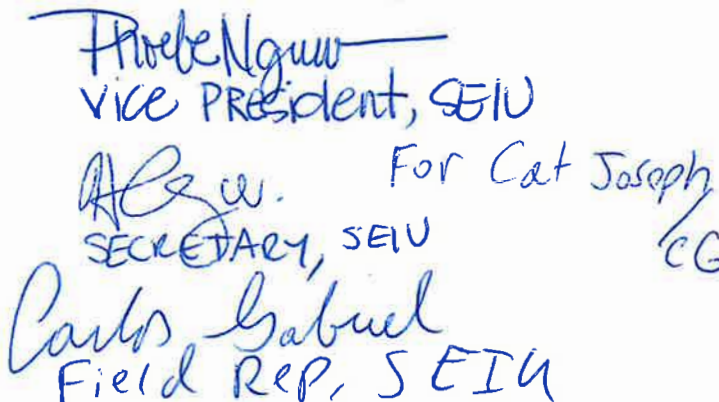 Phoebe
Vice President, SEIU
For Cat Joseph
/CG
SECRETARY, SEIU
Carlos Gabriel
Field Rep, SEIU